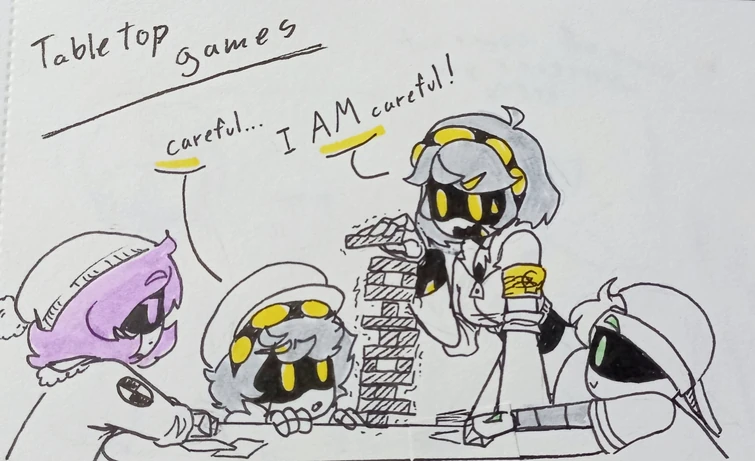 Tabletop
games
careful...
I AM careful!